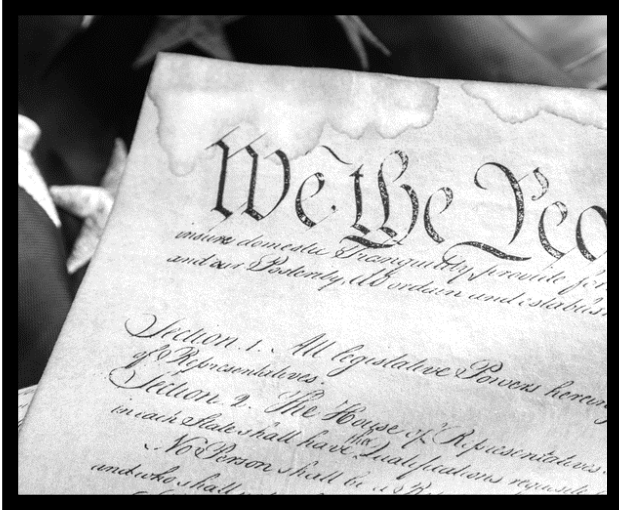 We the Peo
insure domestic Tranquility, provide for
and our Posterity, do ordain and establish
Section. 1. All legislative Powers herein
of Representatives.
Section. 2. The House of Representatives
in each State shall have the Qualifications requisite
No Person shall be a Rep
and who shall